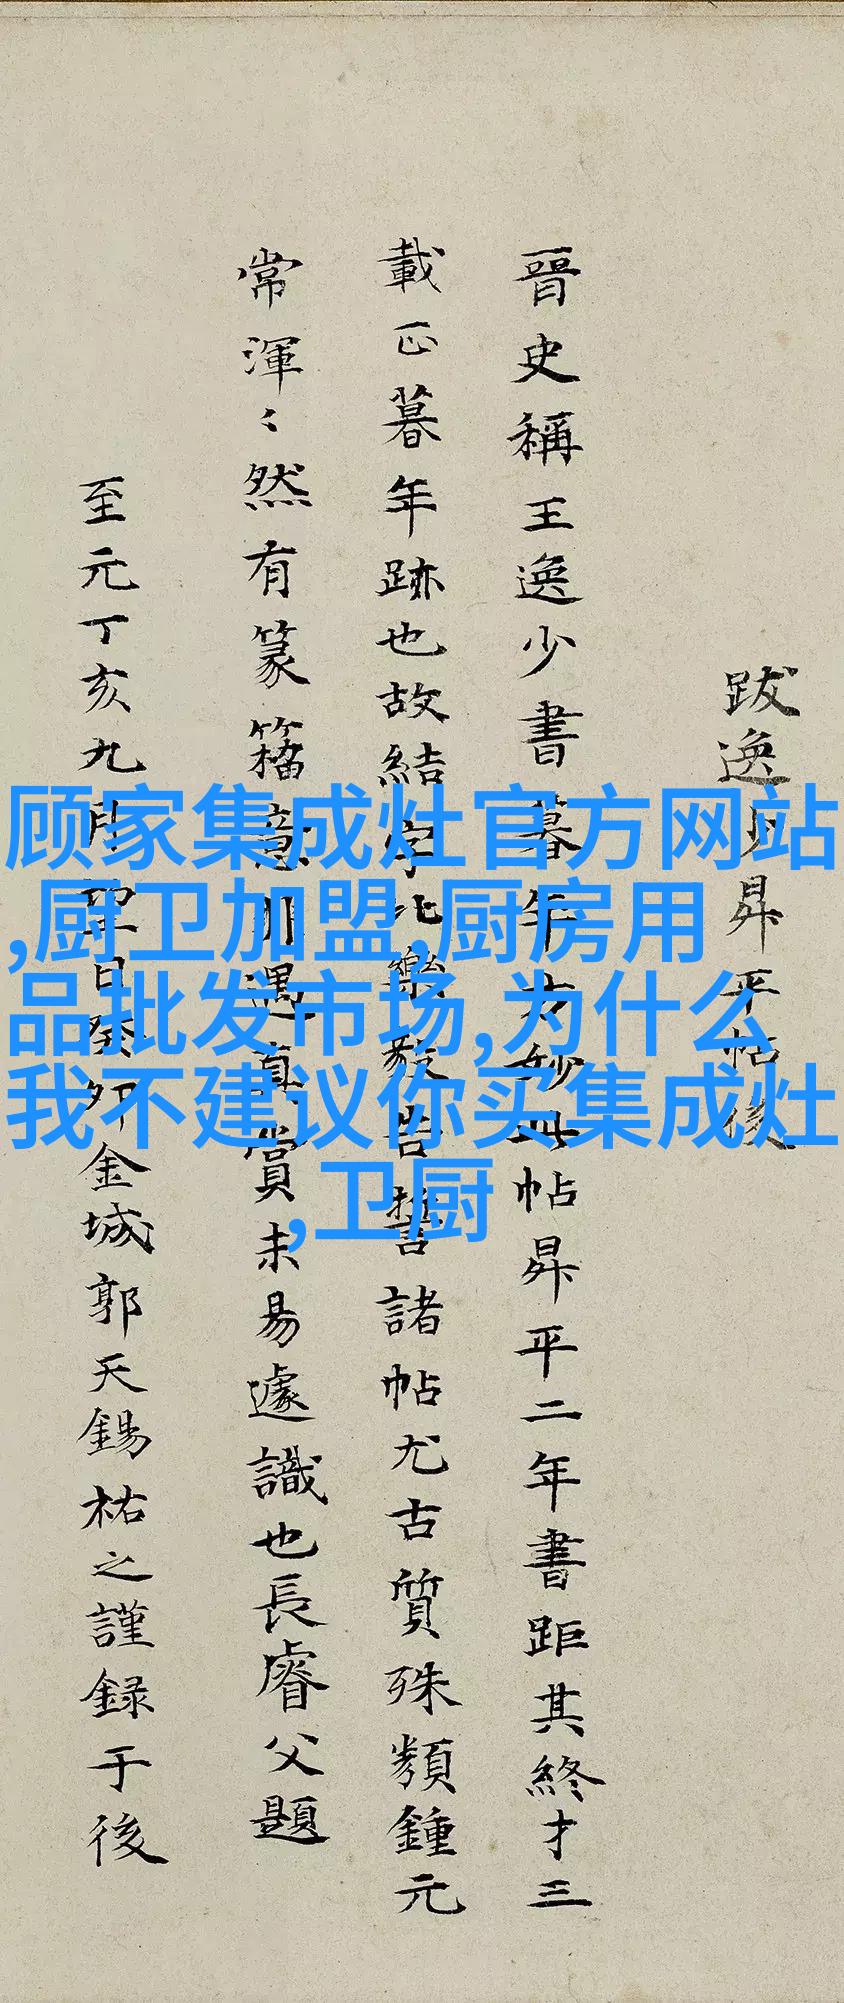 跋逸少昇平帖後
晉史稱王逸少書暮年方妙此帖昇平二年書距其終才三
載正暮年跡也故結字比樂毅告誓諸帖尤古質殊類鍾元
常渾〻然有篆籀意非遇真賞未易遽識也長睿父題
至元丁亥九月望日癸卯金城郭天錫祐之謹録于後
顾家集成灶官方网站
,厨卫加盟,厨房用
品批发市场,为什么
我不建议你买集成灶
,卫厨